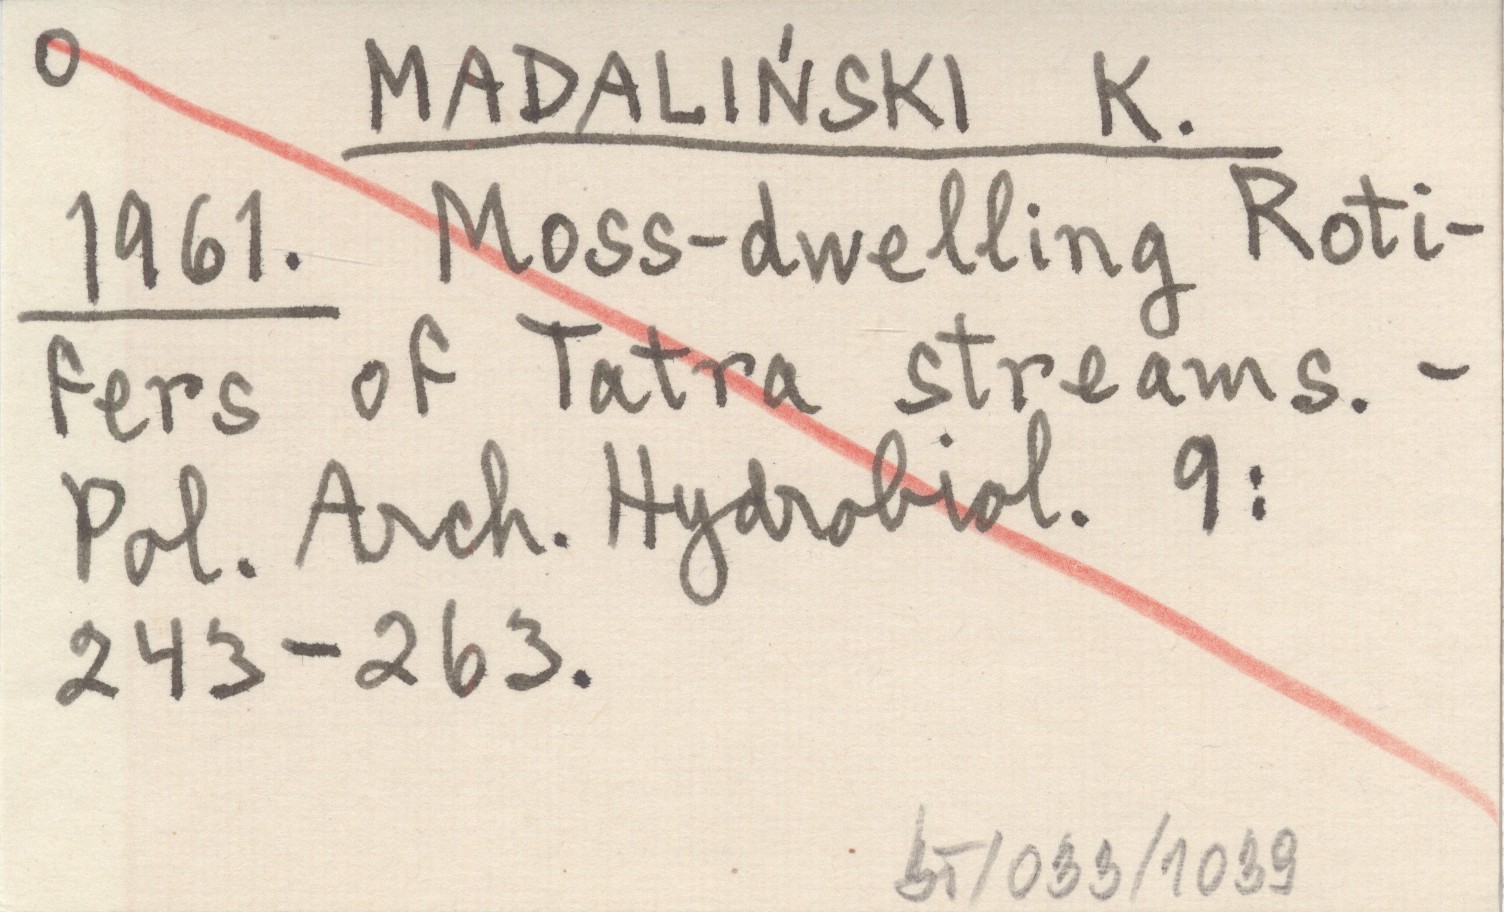 O MADALIŃSKI K.
1961. Moss-dwelling Roti-
fers of Tatra streams. -
Pol. Arch. Hydrobiol. 9:
243-263.
/033/1039